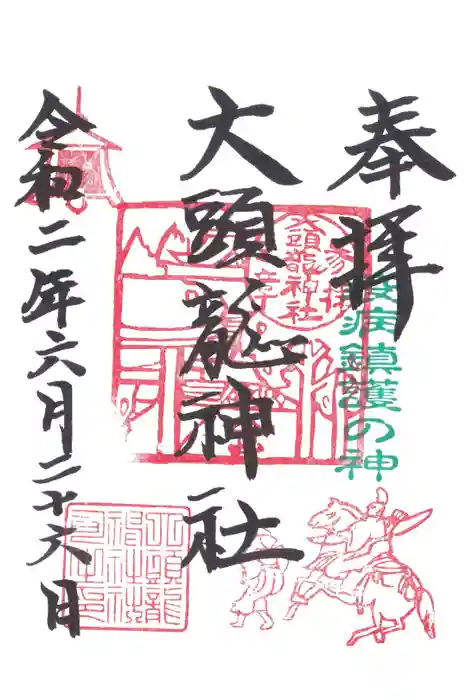 奉拝
疫病鎮護の神
大頭龍神社
大頭龍神社
令和二年六月二十六日